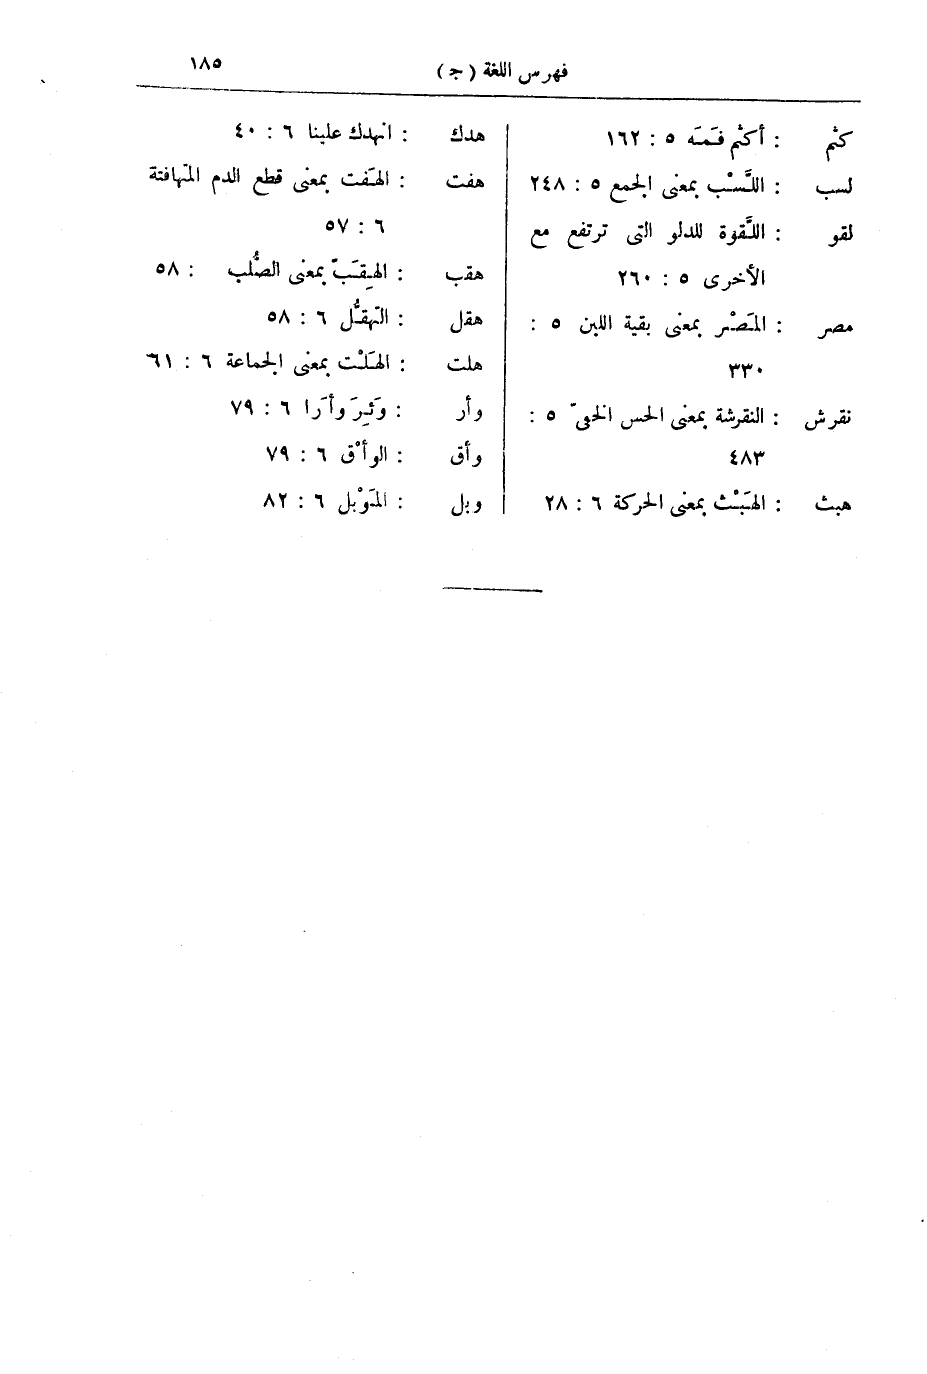 فهرس اللغة ( ج ) ١٨٥
كثم : أكثم فَمَه ٥ : ١٦٢
لسب : اللَّسْب بمعنى الجمع ٥ : ٢٤٨
لقو : اللَّقوة للدلو التى ترتفع مع
الأخرى ٥ : ٢٦٠
مصر : المَصْر بمعنى بقية اللبن ٥ :
٣٣٠
نقرش : النقرشة بمعنى الحس الخفىّ ٥ :
٤٨٣
هبث : الهَبْث بمعنى الحركة ٦ : ٢٨
هدك : انهدك علينا ٦ : ٤٠
هفت : الهَفت بمعنى قطع الدم المتهافتة
٦ : ٥٧
هقب : الهِقَبّ بمعنى الصُّلب : ٥٨
هقل : التهقُّل ٦ : ٥٨
هلت : الهَلْت بمعنى الجماعة ٦ : ٦١
وأر : وَئِرَ وأَرا ٦ : ٧٩
وأق : الوأْق ٦ : ٧٩
وبل : المَوْبل ٦ : ٨٢